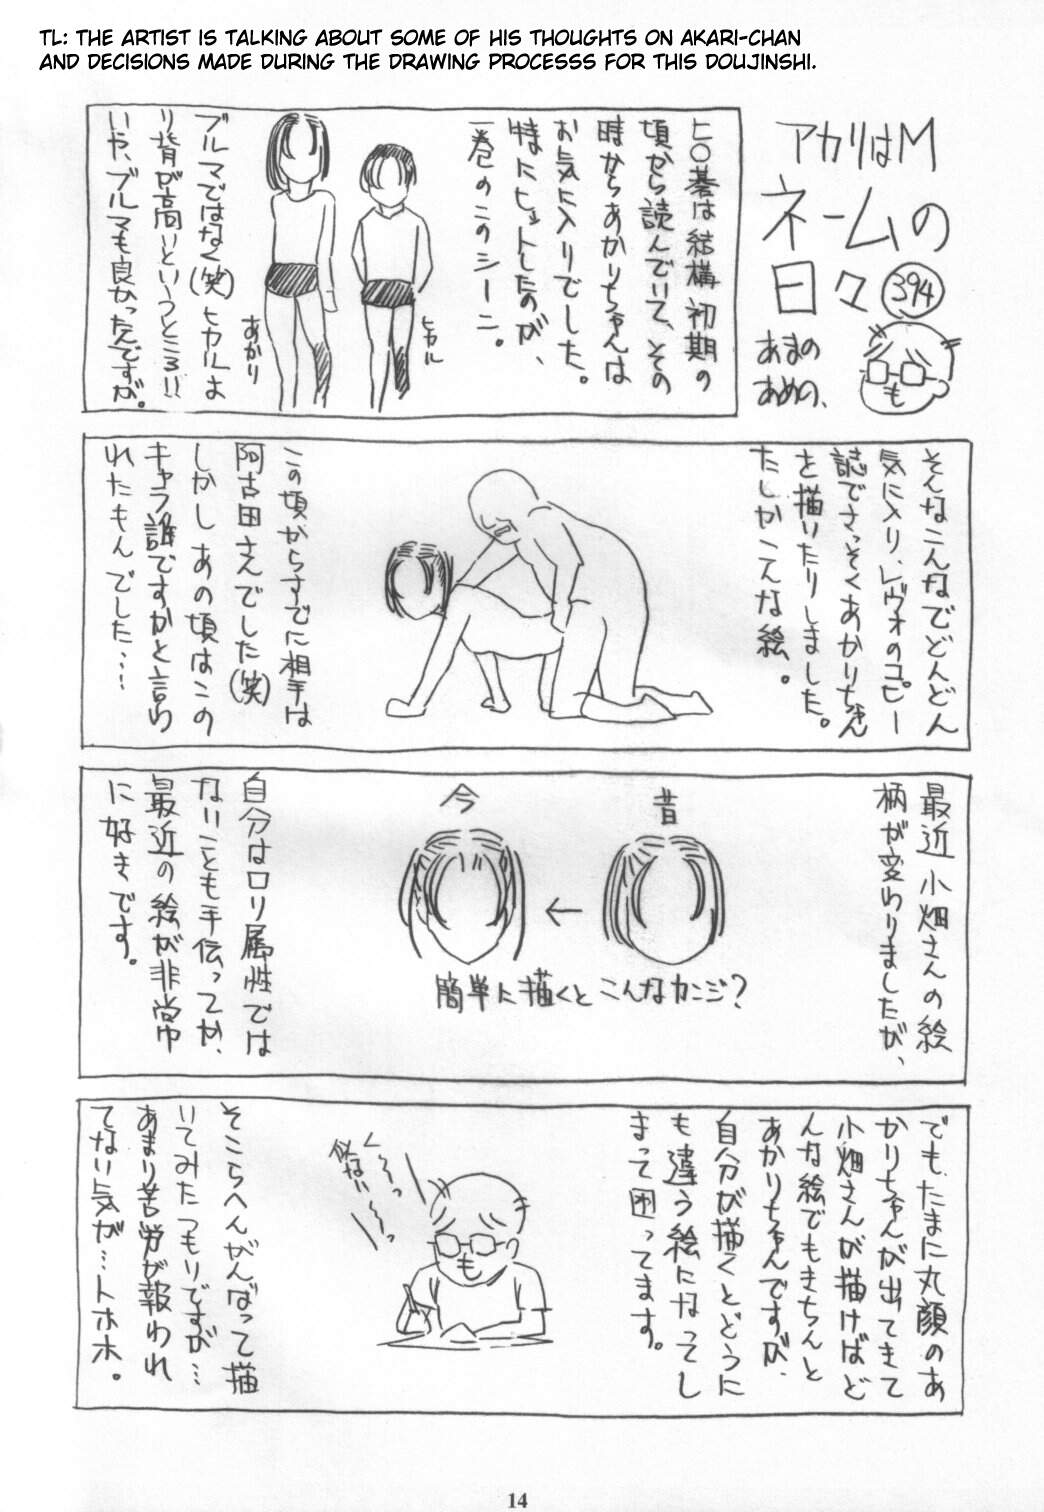 TL: THE ARTIST IS TALKING ABOUT SOME OF HIS THOUGHTS ON AKARI-CHAN
AND DECISIONS MADE DURING THE DRAWING PROCESSS FOR THIS DOUJINSHI.
アカリはM
ネームの
日々
394
あまの
あめの、
ヒ〇碁は結構初期の
頃から読んでいて、その
時からあかりちゃんは
お気に入りでした。
特にヒットしたのが、
一巻のこのシーン。
ヒカル
あかり
ブルマではなく(笑)ヒカルよ
り背が高いというところ!!
いや、ブルマも良かったんですが。
そんなこんなでどんどん
気に入り、レヴォのコピー
誌でさっそくあかりちゃん
を描いたりしました。
たしかこんな絵。
この頃からすでに相手は
阿古田さんでした(笑)
しかしあの頃はこの
キャラ誰ですかと言わ
れたもんでした……
最近小畑さんの絵
柄が変わりましたが、
昔
←
今
簡単に描くとこんなカンジ?
自分はロリ属性では
ないことも手伝ってか、
最近の絵が非常
に好きです。
でも、たまに丸顔のあ
かりちゃんが出てきて
小畑さんが描けばど
んな絵でもきちんと
あかりちゃんですが、
自分が描くとどうに
も違う絵になってし
まって困ってます。
似ない〜〜っ
そこらへんがんばって描
いてみたつもりですが…
あまり苦労が報われ
てない気が…トホホ。
14